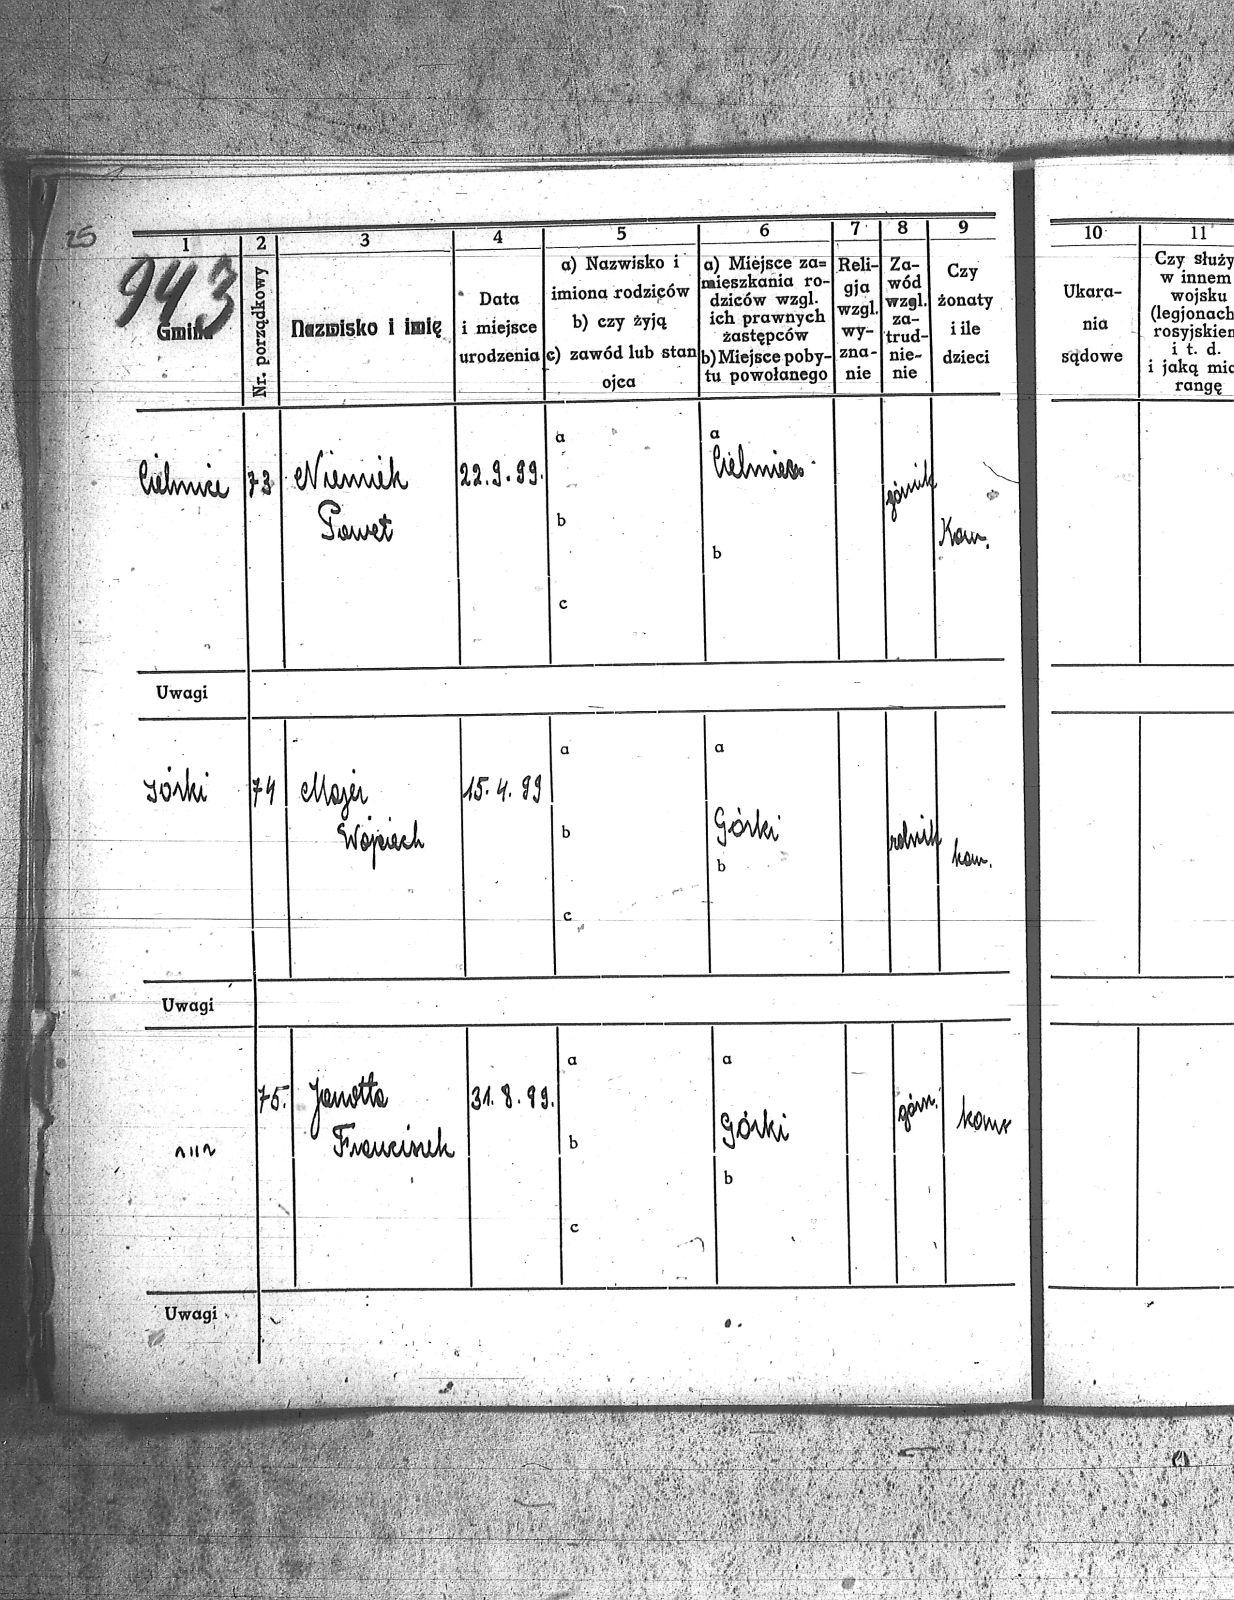 25
943
1 2 3 4 5 6 7 8 9 10 11
Gmina
Nr. porządkowy
Nazwisko i imię
Data
i miejsce
urodzenia
a) Nazwisko i
imiona rodziców
b) czy żyją
c) zawód lub stan
ojca
a) Miejsce za=
mieszkania ro-
dziców wzgl.
ich prawnych
zastępców
b) Miejsce poby-
tu powołanego
Reli-
gja
wzgl.
wy-
zna-
nie
Za-
wód
wzgl.
za-
trud-
nie-
nie
Czy
żonaty
i ile
dzieci
Ukara-
nia
sądowe
Czy służy
w innem
wojsku
(legjonach
rosyjskiem
i t. d.
i jaką mia
rangę
Cielmice 73 Niemiek 22.9.99. a a Cielmice górnik
Paweł b b Kaw.
c
Uwagi
Górki 74 Majer 15.4.99 a a
Wojciech b Górki rolnik kaw.
b
c
Uwagi
75. Janotta 31.8.99. a a górn.
~"~ Franciszek b Górki kaw
b
c
Uwagi